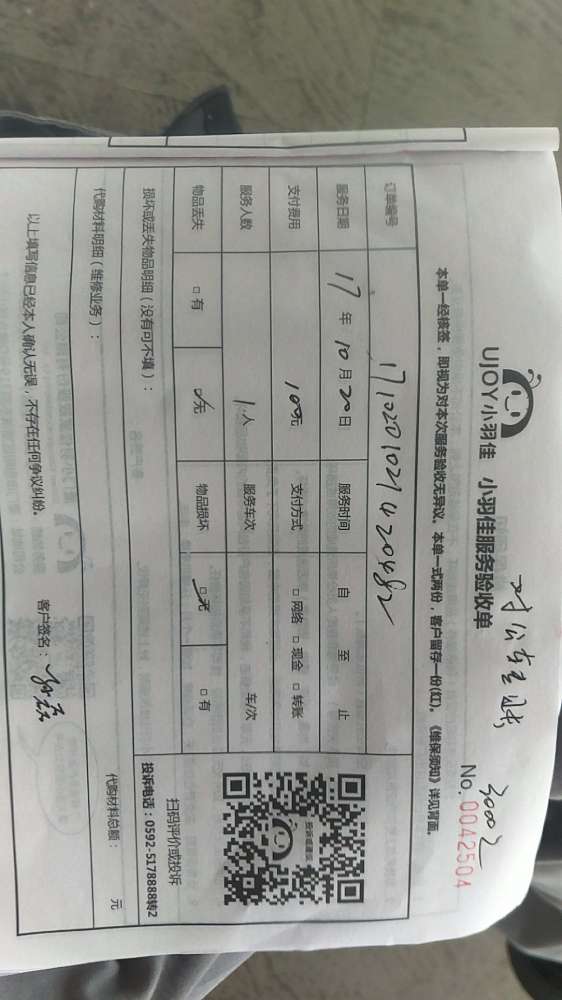 对公转账 30002
UJOY小羽佳 小羽佳服务验收单
No. 0042504
本单一经核签,即视为对本次服务验收无异议。本单一式两份,客户留存一份(红)。《维保须知》详见背面。
订单编号 1710201021420482
服务日期 17年10月20日 服务时间 自 至 止
支付费用 100元 支付方式 □网络 □现金 □转账
服务人数 1人 服务车次 车/次
物品丢失 □有 □无 物品损坏 □无 □有
损坏或丢失物品明细(没有可不填):
扫码评价或投诉
投诉电话:0592-5178888转2
代购材料明细(维修业务): 代购材料总额: 元
以上填写信息已经本人确认无误,不存在任何争议纠纷。
客户签名: